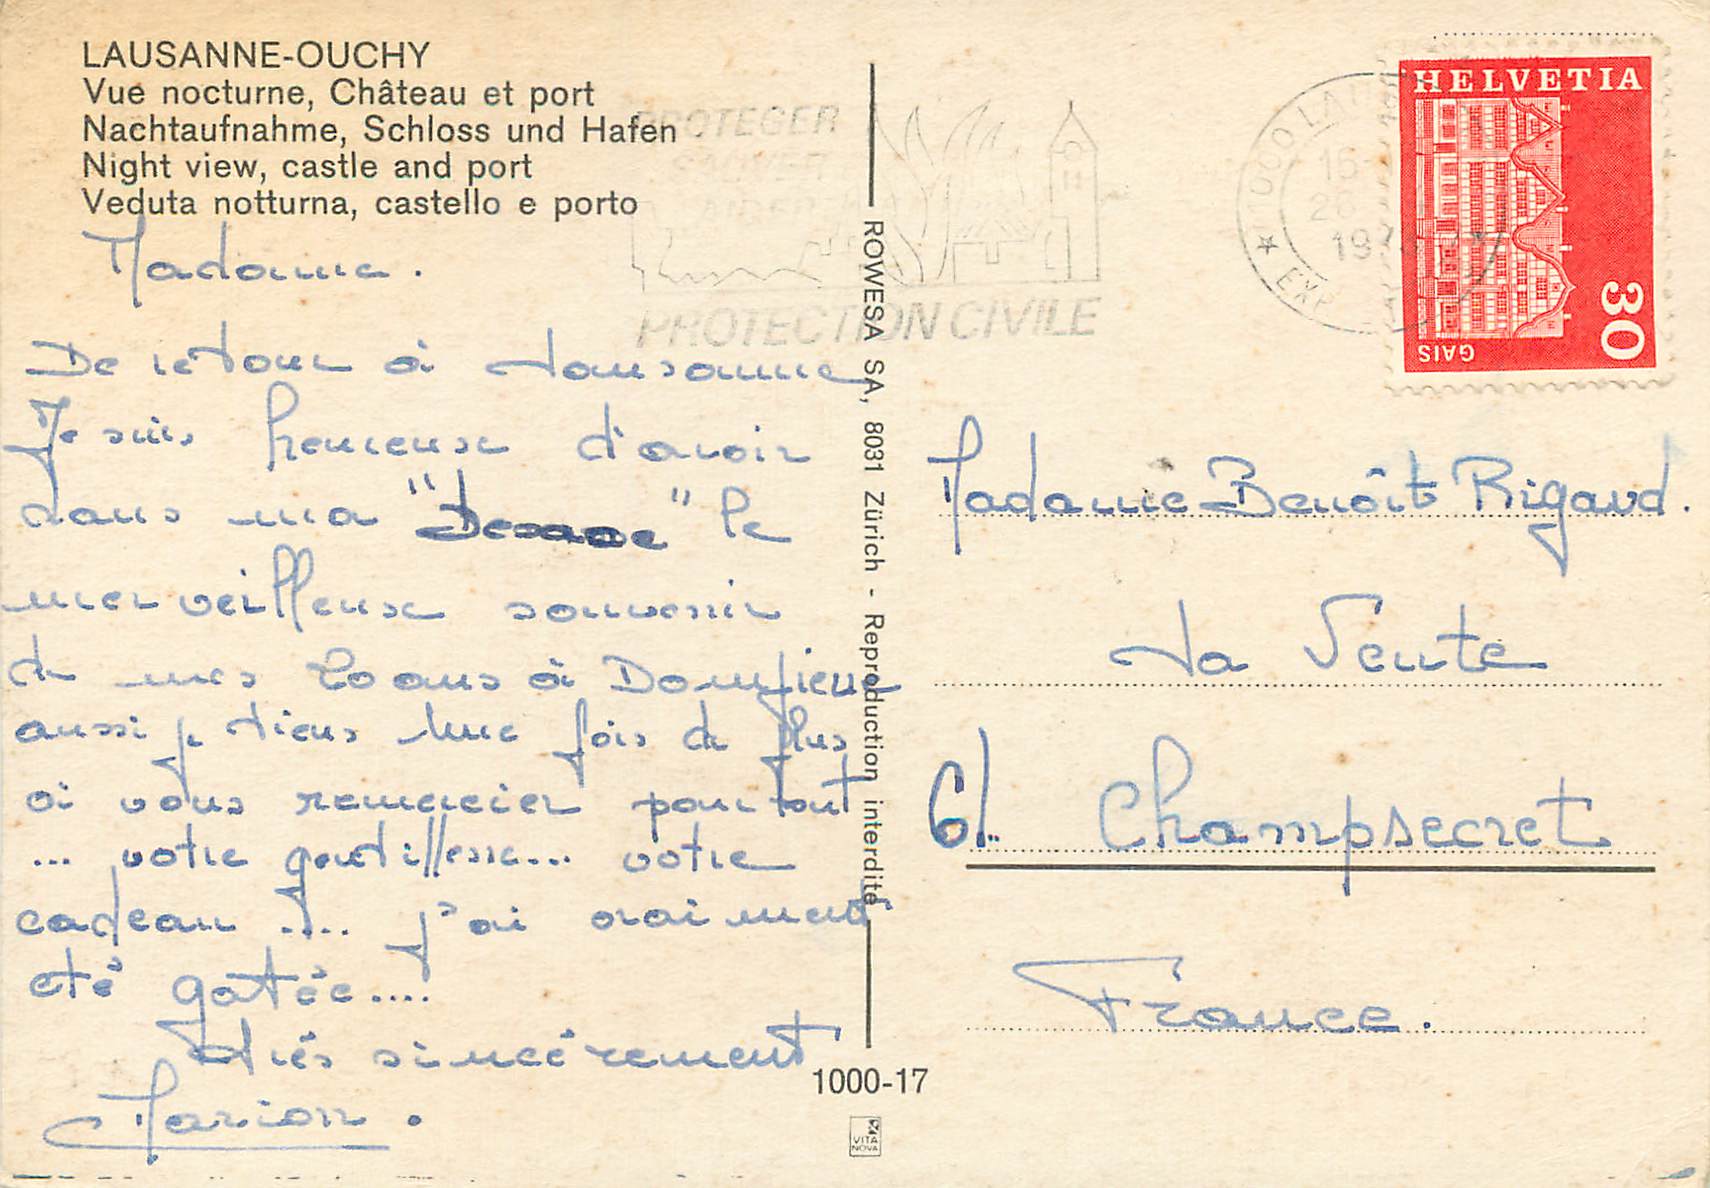 LAUSANNE-OUCHY
Vue nocturne, Château et port
Nachtaufnahme, Schloss und Hafen
Night view, castle and port
Veduta notturna, castello e porto
Madame.
De retour à Lausanne
Je suis heureuse d'avoir
dans ma " " le
merveilleuse souvenir
de mes 20 ans à Domfront
aussi je tiens une fois de plus
à vous remercier pour tout
... votre gentillesse... votre
cadeau .... j'ai vraiment
été gâtée....
très sincèrement
Marion.
PROTEGER
SAUVER
AIDER
PROTECTION CIVILE
ROWESA SA, 8031 Zürich - Reproduction interdite
1000-17
VITA
NOVA
1000 LAU
16-
26
197
EXP
HELVETIA
30
GAIS
Madame Benoît Rigaud.
La Vente
61. Champsecret
France.